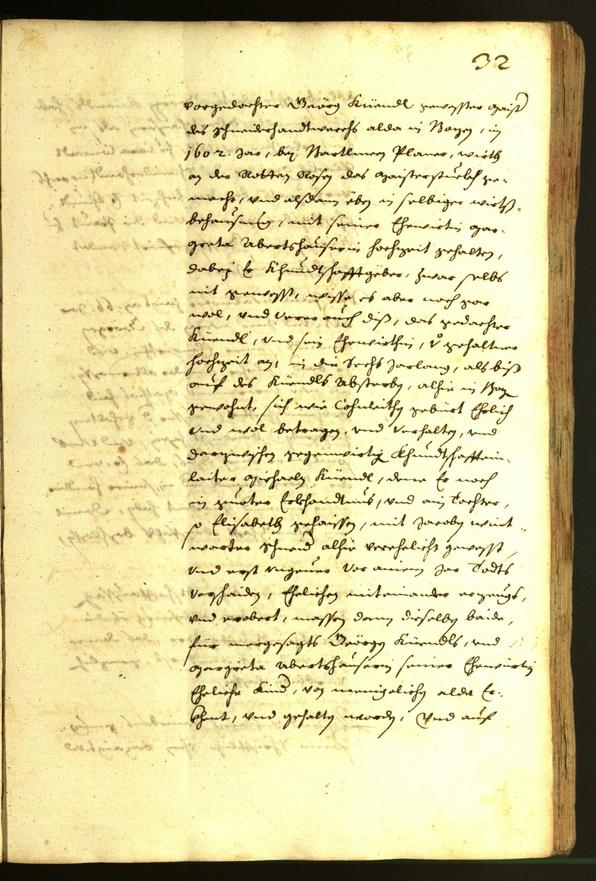 32
vorgedachter Geörg Küendl gewester maister
des Schneiderhandtwerchs alda in Bozen, im
1602. Jar, bey Bartlmeen Planer, wirth
an der Rotten Rosen das maisterstuckh ge-
macht, und alßdann eben in selbiger wirths-
behausung, mit seiner Ehewirtin Mar-
greta Abertshauserin hochzeit gehalten,
dabey Er Khundtschafftgeber, zwar selbs
nit gewesst, wisse es aber noch gar
wol, und auch diß, das gedachter
Küendl, und sein Ehewirthin, gehaltner
hochzeit an, in die Sechs Jarlang, als biß
auf des Küendls Absterben, alhie in Bozen
gewohnt, sich wie Eheleithen gebürt Ehrlich
und wol betragen, und verhalten, und
darzwischen gegenwirtig Khundtschafft ein-
laiter Michaeln Küendl, denn Er noch
in gueter Erkhandtnus, und ain Tochter,
so Elisabeth gehaissen, mit Jacoben
Schneider alhie verehelicht gewesst,
und erst ungeuer vor ainem Jar Todts
verschaiden, Ehelichen miteinander erzeugt,
und erobert, massen dann dieselben baide,
für mergesagts Geörgen Küendls, und
Margreta Abertshauserin seiner Ehewirtin
Eheliche Kind, von menigelichen alda Er-
khent, und gehalten worden, Und auf